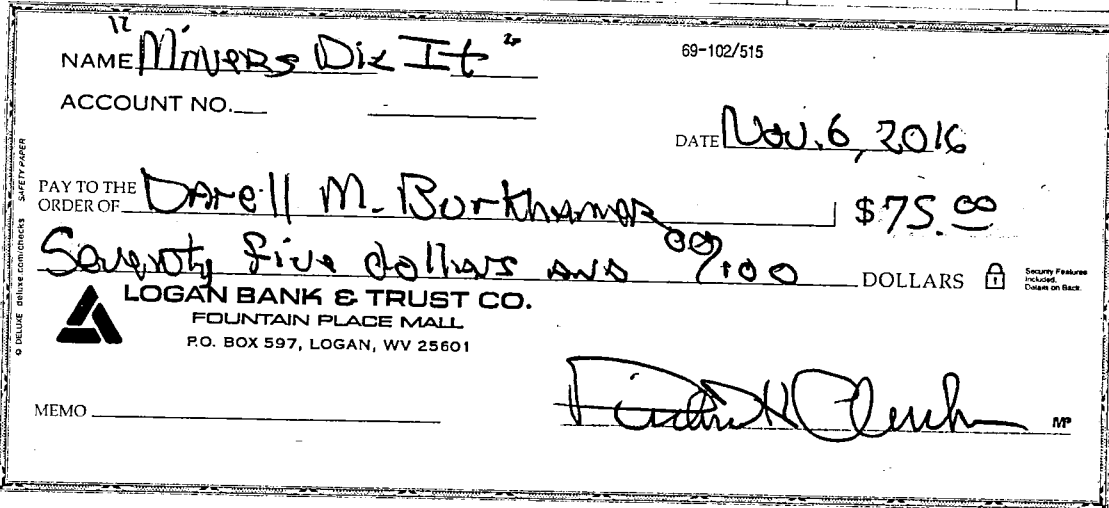 NAME "Miners Dig It"
69-102/515
ACCOUNT NO.
DATE Nov. 6, 2016
PAY TO THE ORDER OF Darell M. Burkhamer $75.00
Seventy five dollars and 00/100 DOLLARS
Security Features Included. Details on Back.
LOGAN BANK & TRUST CO.
FOUNTAIN PLACE MALL
P.O. BOX 597, LOGAN, WV 25601
MEMO
MP
© DELUXE deluxe.com/checks SAFETY PAPER